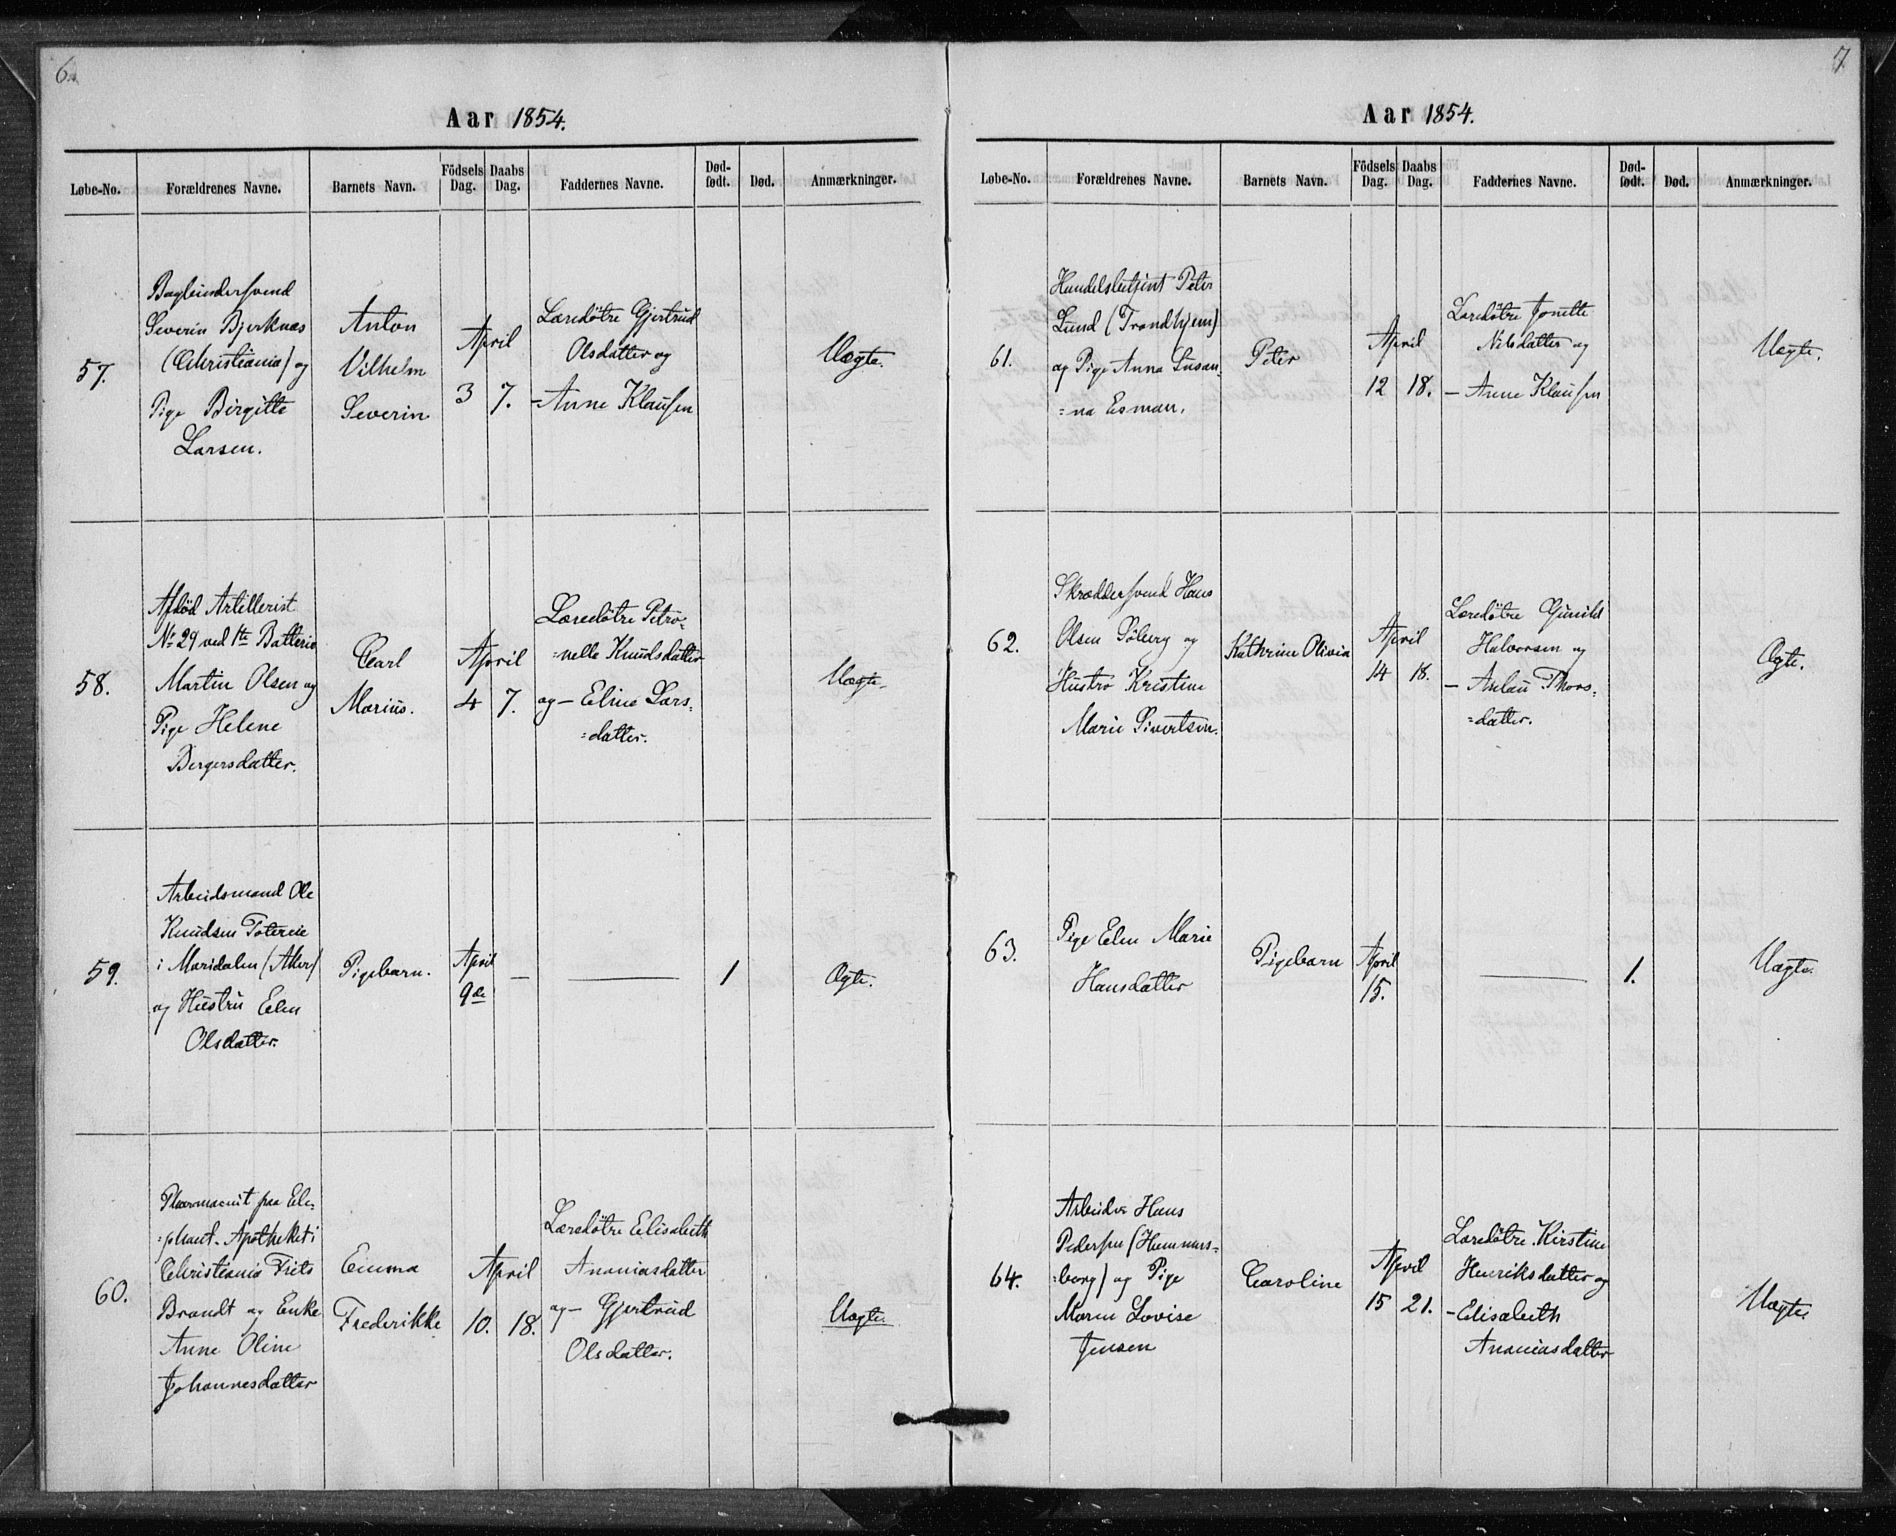 6.
Aar 1854.
Løbe-No. Forældrenes Navne. Barnets Navn. Födsels Dag. Daabs Dag. Faddernes Navne. Død-født. Død. Anmærkninger.
57.
Bogbindersvend
Severin Bjerknæs
(Christiania) og
Pige Birgitte
Larsen.
Anton
Vilhelm
Severin
April
3 7.
Læredøtre Gjertrud
Olsdatter og
- Anne Klausen
Uægte.
58.
Afdød Artillerist
No 29 ved 1te Batterie
Martin Olsen og
Pige Helene
Bergersdatter.
Carl
Marius.
April
4 7.
Læredøtre Petro-
=nelle Knudsdatter
og - Eline Lars-
=datter.
Uægte.
59.
Arbeidsmand Ole
Knudsen
i Maridalen (Aker)
og Hustru Elen
Olsdatter.
Pigebarn.
April
9de
—
—
1
Ægte.
60.
Pharmaceut paa Ele-
=phant-Apotheket i
Christiania Frits
Brandt og Enke
Anne Oline
Johannesdatter
Emma
Frederikke
April
10. 18.
Læredøtre Elisabeth
Ananiasdatter
og - Gjertrud
Olsdatter.
Uægte.
7.
Aar 1854.
Løbe-No. Forældrenes Navne. Barnets Navn. Födsels Dag. Daabs Dag. Faddernes Navne. Død-født. Død. Anmærkninger.
61.
Handelsbetjent Peter
Lund (Trondhjem)
og Pige Anna Susan-
=na Esman.
Peter
April
12 18.
Læredøtre Jonette
Nilsdatter og
- Anne Klausen
Uægte.
62.
Skræddersvend Hans
Olsen Søberg og
Hustro Kristine
Marie Sivertsen.
Kathrine Olivia
April
14 18.
Læredøtre Gunild
Halvorsen og
- Aslau Thors-
=datter.
Ægte.
63.
Pige Elen Marie
Hansdatter
Pigebarn
April
15.
—
1.
Uægte.
64.
Arbeidsm Hans
Pedersen (Hammers-
=borg) og Pige
Maren Lovise
Jensen
Caroline
April
15 21.
Læredøtre Kirstine
Henriksdatter og
- Elisabeth
Ananiasdatter
Uægte.